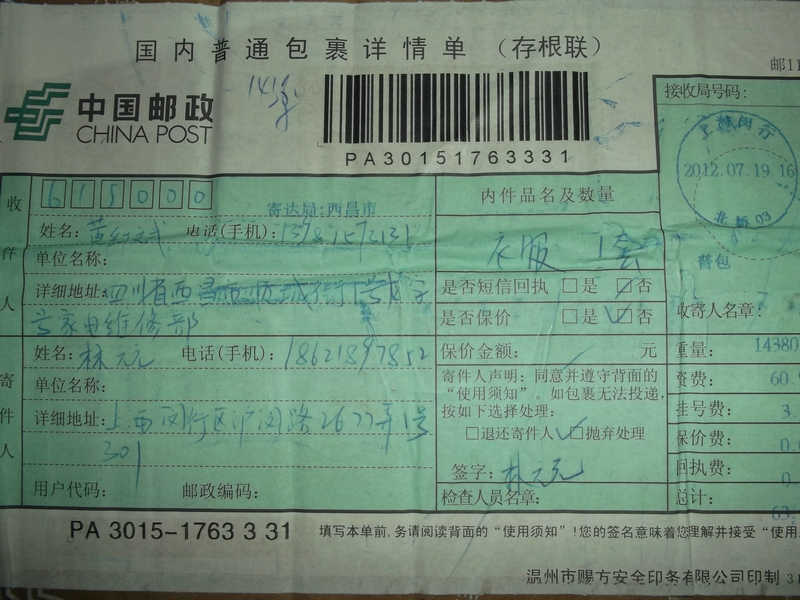 国内普通包裹详情单 (存根联)
邮11
中国邮政
CHINA POST
PA30151763331
接收局号码:
2012.07.19.16
收件人
615000
寄达局:西昌市
姓名: 电话(手机):
单位名称:
详细地址: 四川省西昌
家电维修部
内件品名及数量
衣服 1套
是否短信回执 □是 ☑否
是否保价 □是 ☑否
普包
收寄人名章:
寄件人
姓名: 林元元 电话(手机): 18621897852
单位名称:
详细地址: 上海闵行区沪闵路2677弄1号
301
用户代码: 邮政编码:
保价金额: 元
寄件人声明: 同意并遵守背面的
“使用须知”。如包裹无法投递,
按如下选择处理:
□退还寄件人 ☑抛弃处理
签字: 林元元
检查人员名章:
重量: 14380
资费: 60.
挂号费: 3.
保价费: 0.
回执费: 0
总计: 63.
PA 3015-1763 3 31
填写本单前,务请阅读背面的“使用须知”!您的签名意味着您理解并接受“使用
温州市赐方安全印务有限公司印制